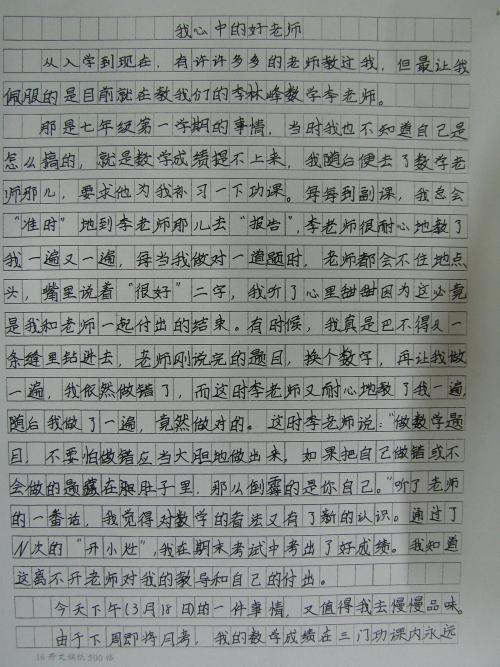 我心中的好老师
从入学到现在，有许许多多的老师教过我，但最让我
佩服的是目前就在教我们的李林峰数学李老师。
那是七年级第一学期的事情，当时我也不知道自己是
怎么搞的，就是数学成绩提不上来，我随后便去了数学老
师那儿，要求他为我补习一下功课。每每到副课，我总会
“准时”地到李老师那儿去“报告”，李老师很耐心地教了
我一遍又一遍，每当我做对一道题时，老师都会不住地点
头，嘴里说着“很好”二字，我听了心里甜甜因为这必竟
是我和老师一起付出的结束。有时候，我真是巴不得又一
条缝里钻进去，老师刚说完的题目，换个数字，再让我做
一遍，我依然做错了，而这时李老师又耐心地教了我一遍，
随后我做了一遍，竟然做对的。这时李老师说：“做数学题
目，不要怕做错应当大胆地做出来，如果把自己做错或不
会做的题藏在肚子里，那么倒霉的是你自己。”听了老师
的一番话，我觉得对数学的看法又有了新的认识。通过了
N次的“开小灶”，我在期末考试中考出了好成绩。我知道
这离不开老师对我的教导和自己的付出。
今天下午(3月18日)的一件事情，又值得我去慢慢品味。
由于下周即将月考，我的数学成绩在三门功课内永远
16开文稿纸500格